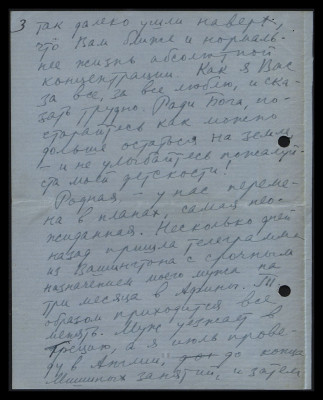 3 так далеко ушли наверх,
что Вам ближе и нормаль-
нее жизнь абсолютной
концентрации. Как я Вас
за все, за все люблю, и ска-
зать трудно. Ради Бога, по-
старайтесь как можно
дольше остаться на земле,
— и не улыбайтесь пожалуй-
ста моей детскости!
Родная — у нас переме-
на в планах, самая нео-
жиданная. Несколько дней
назад пришла телеграмма
из Вашингтона с срочным
назначением моего мужа на
три месяца в Афины.
образом приходится все
менять. Муж уезжает в
Грецию, а я июль прове-
ду в Англии, до конца
Мишиных занятий, и затем